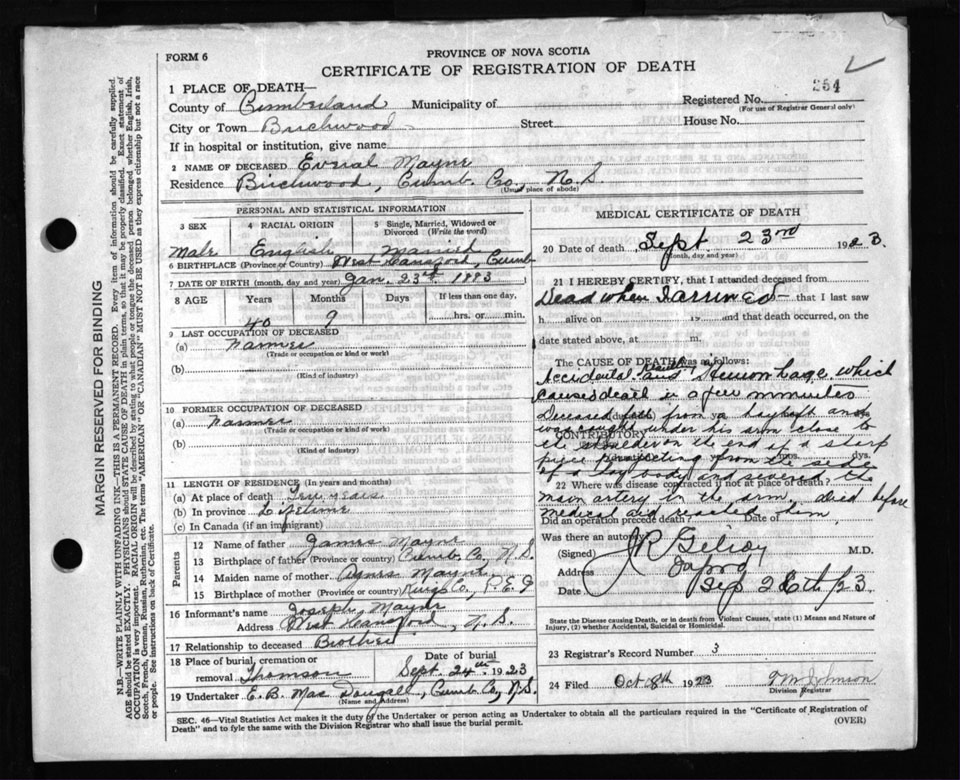 FORM 6
PROVINCE OF NOVA SCOTIA
CERTIFICATE OF REGISTRATION OF DEATH
264
1 PLACE OF DEATH—
County of Cumberland Municipality of Registered No.
(For use of Registrar General only)
City or Town Birchwood Street House No.
If in hospital or institution, give name
2 NAME OF DECEASED Mayne
Residence Birchwood, Cumb. Co. N.S.
(Usual place of abode)
PERSONAL AND STATISTICAL INFORMATION
3 SEX 4 RACIAL ORIGIN 5 Single, Married, Widowed or Divorced (Write the word)
Male English Married
6 BIRTHPLACE (Province or Country) West Hansford, Cumb
7 DATE OF BIRTH (month, day and year) Jan. 23rd 1883
8 AGE Years Months Days If less than one day,
40 9 hrs. or min.
9 LAST OCCUPATION OF DECEASED
(a) Farmer
(Trade or occupation or kind or work)
(b)
(Kind of industry)
10 FORMER OCCUPATION OF DECEASED
(a) Farmer
(Trade or occupation or kind of work)
(b)
(Kind of industry)
11 LENGTH OF RESIDENCE (In years and months)
(a) At place of death Ten years
(b) In province Lifetime
(c) In Canada (if an immigrant)
Parents
12 Name of father James Mayne
13 Birthplace of father (Province or country) Cumb. Co, N.S.
14 Maiden name of mother Agnes Mayne
15 Birthplace of mother (Province or country) Kings Co., P.E.I
16 Informant's name Joseph Mayne
Address West Hansford, N.S.
17 Relationship to deceased Brother
18 Place of burial, cremation or removal Thomson Date of burial Sept. 24th 1923
19 Undertaker E.B. Mac Dougall, Cumb. Co, N.S.
(Name and Address)
MEDICAL CERTIFICATE OF DEATH
20 Date of death Sept. 23rd 1923
(Month, day and year)
21 I HEREBY CERTIFY, that I attended deceased from
Dead when I arrived that I last saw
h alive on 19 and that death occurred, on the
date stated above, at m.
The CAUSE OF DEATH was as follows:
Accidental death Hemorrhage which
caused death in a few minutes
Deceased fell from a hayloft and
was caught under his arm close to
CONTRIBUTORY
the shoulder on the end of a sharp
mos. dys.
piece projecting from the side
of a hay body and severed the
22 Where was disease contracted if not at place of death?
main artery in the arm. died before
medical aid reached him
Did an operation precede death? Date of
Was there an autopsy?
(Signed) M.D.
Address
Date Sep 26th/23
State the Disease causing Death, or in death from Violent Causes, state (1) Means and Nature of Injury, (2) whether Accidental, Suicidal or Homicidal.
23 Registrar's Record Number 3
24 Filed Oct 8th 1923 Johnson
Division Registrar
SEC. 46—Vital Statistics Act makes it the duty of the Undertaker or person acting as Undertaker to obtain all the particulars required in the "Certificate of Registration of
Death" and to fyle the same with the Division Registrar who shall issue the burial permit. (OVER)
MARGIN RESERVED FOR BINDING
N.B.—WRITE PLAINLY WITH UNFADING INK—THIS IS A PERMANENT RECORD. Every item of information should be carefully supplied.
AGE should be stated EXACTLY. PHYSICIANS should STATE CAUSE OF DEATH in plain terms, so that it may be properly classified. Exact statement of
OCCUPATION is very important. RACIAL ORIGIN will be described by stating to what people or tongue the deceased person belonged, whether English, Irish,
Scotch, French, German, Russian, Ruthenian, etc. The terms "AMERICAN" OR "CANADIAN" MUST NOT BE USED as they express citizenship but not a race
or people. See instructions on back of Certificate.